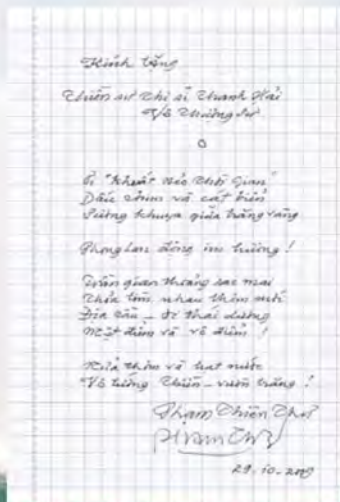 Kính tặng
Thiền sư Thi sĩ Thanh Hải
Vô Thượng Sư
Ơi "Khoát Nẻo Thời Gian"
Dấu chim và cát biển
Sương khuya giữa trăng vàng
Phong Lan đông im hương !
Trần gian thoáng sắc mai
Thừa tìm nhau thăm
Địa cầu _ thái dương
Một điểm và vô điểm !
thềm và hạt nước
Vô lượng Thiền _ vườn trăng !
Phạm Thiên Thư
29.10.2009